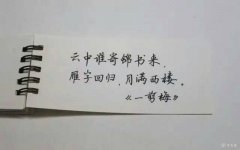 云中谁寄锦书来，
雁字回归，月满西楼。
《一剪梅》